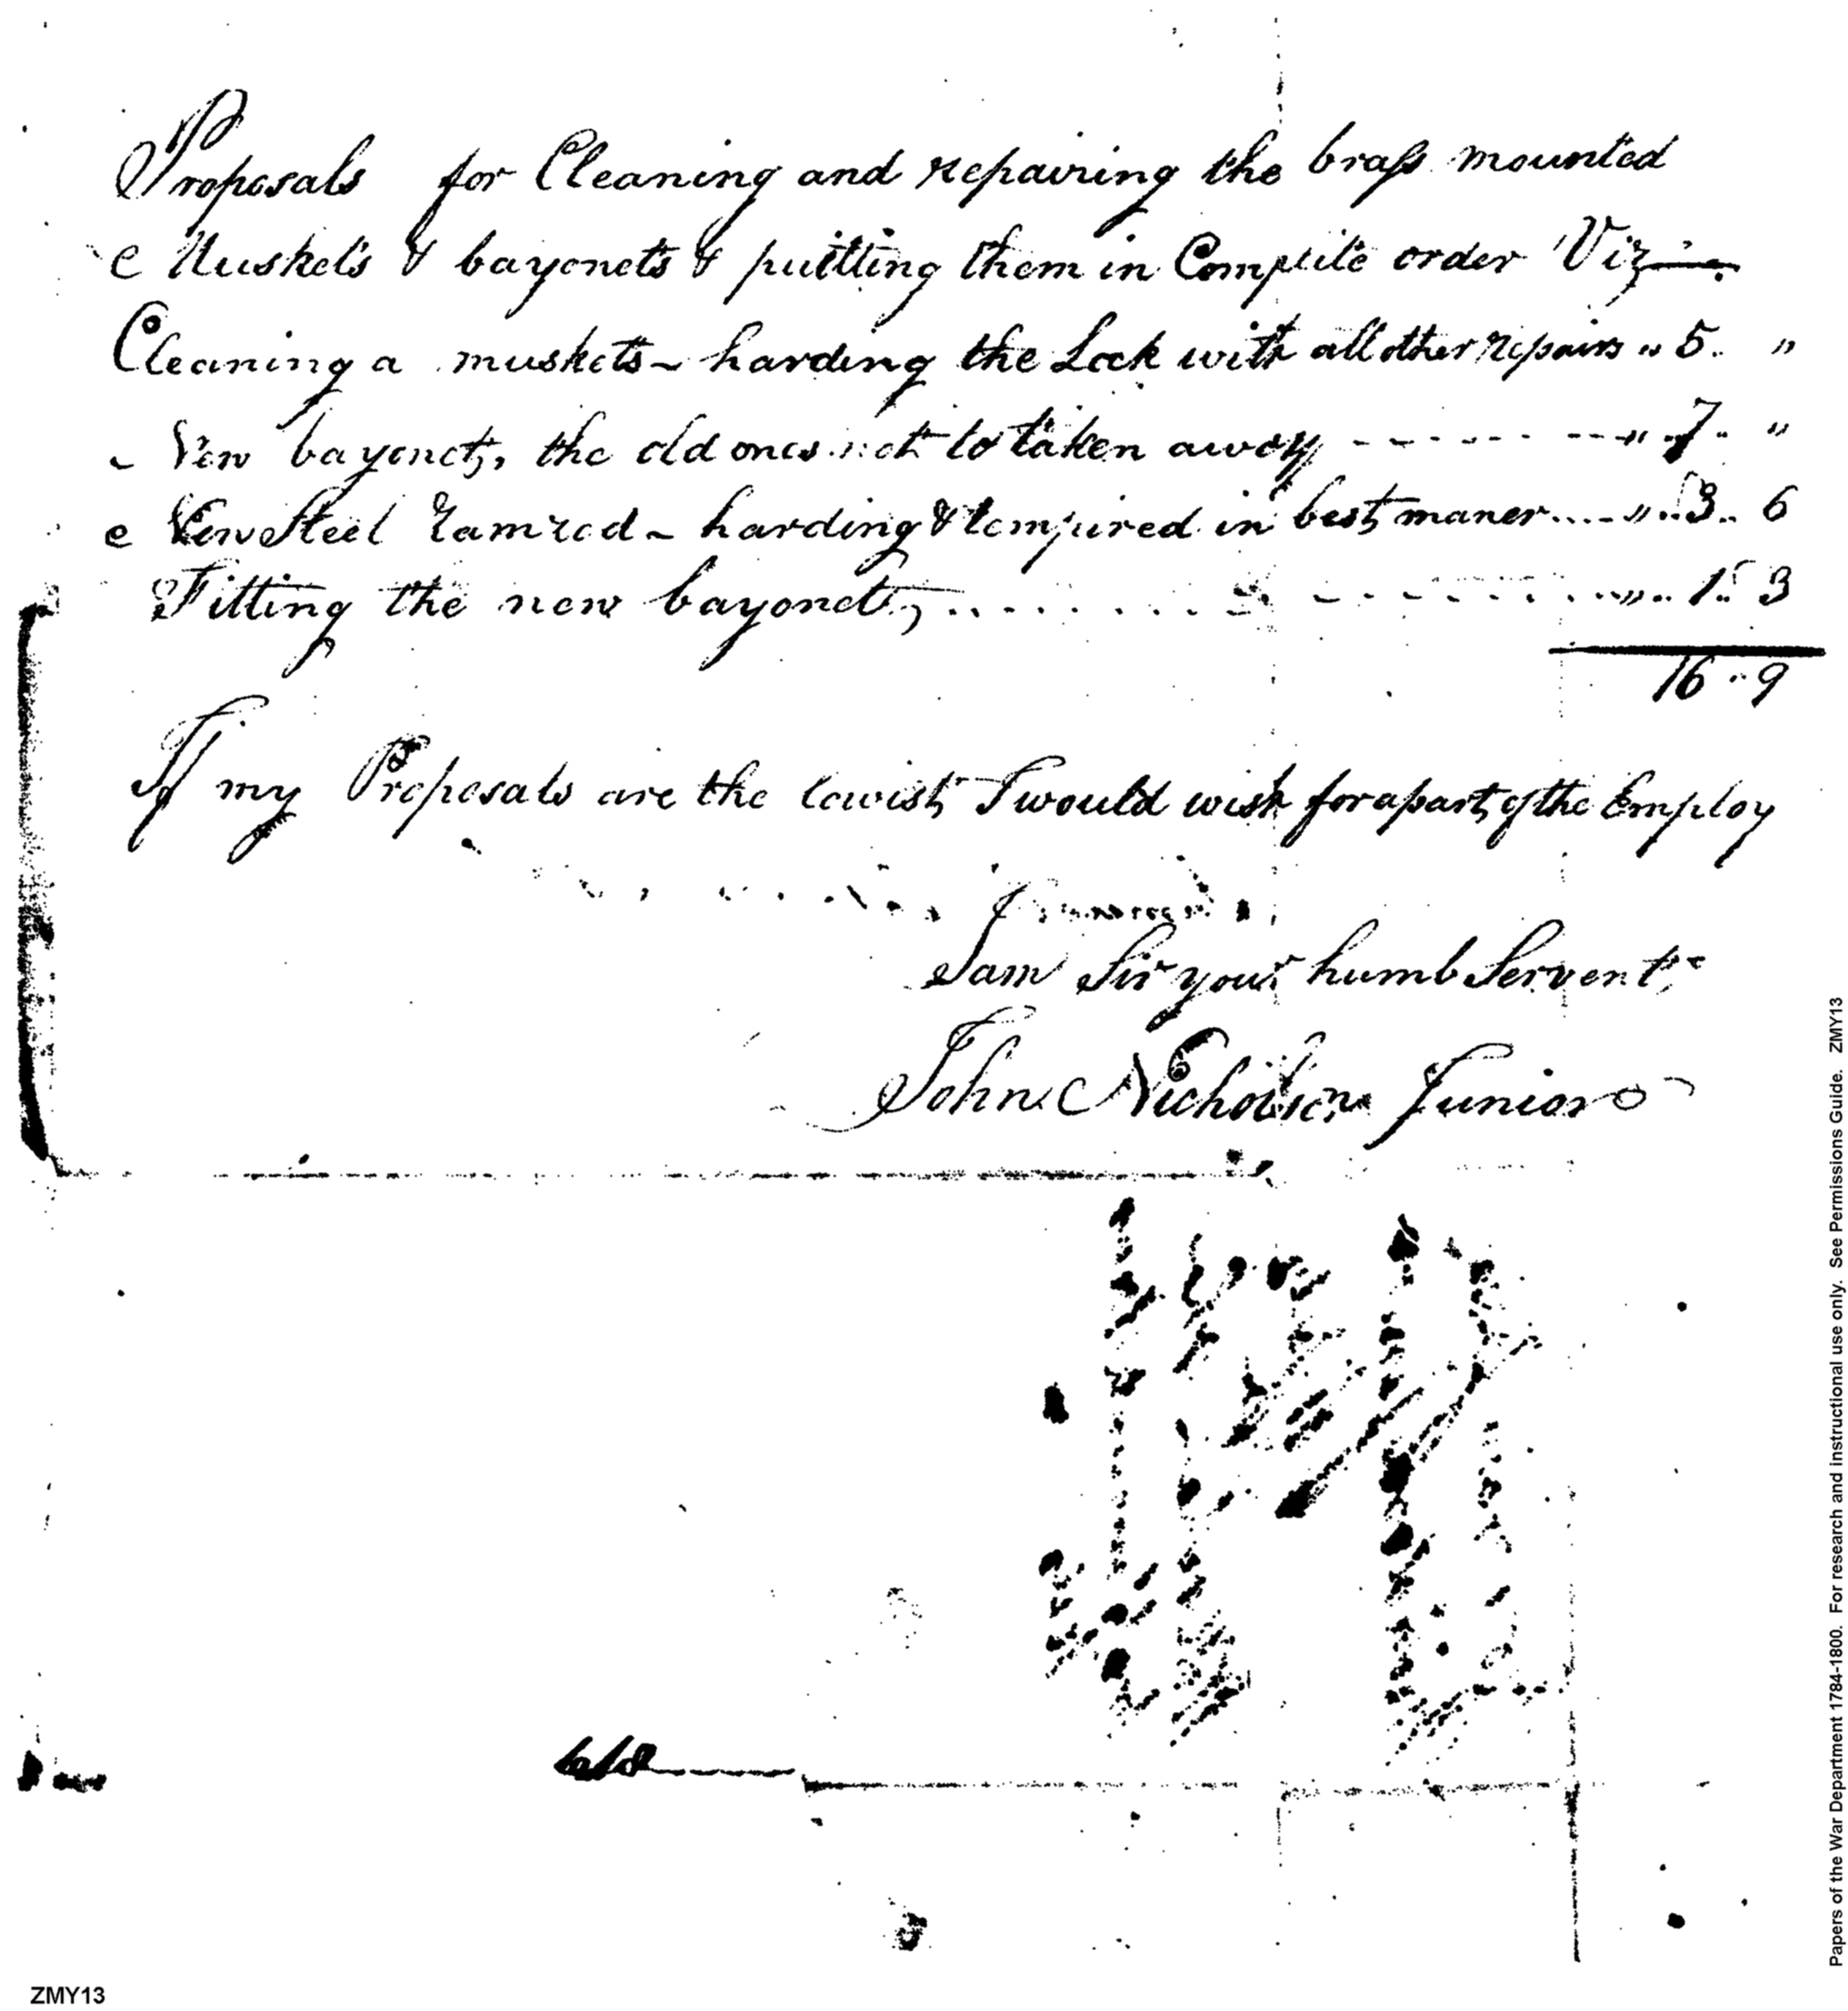 Proposals for Cleaning and repairing the brass mounted
Muskets & bayonets & puitting them in Compleite order Viz
Cleaning a muskets ~ harding the Lock with all other repairs " 5. "
~ New bayonet, the old ones not to taken away ----------- " 7. "
New Steel ramrod ~ harding & tempired in best maner.....".. 3.. 6
Fitting the new bayonet, ........ - ----------- ".. 1.. 3
16 .. 9
If my Proposals are the lowist I would wish for a part of the Employ
I am Sir your humb Servent
John Nicholson Junior
Papers of the War Department 1784-1800. For research and instructional use only. See Permissions Guide. ZMY13
ZMY13